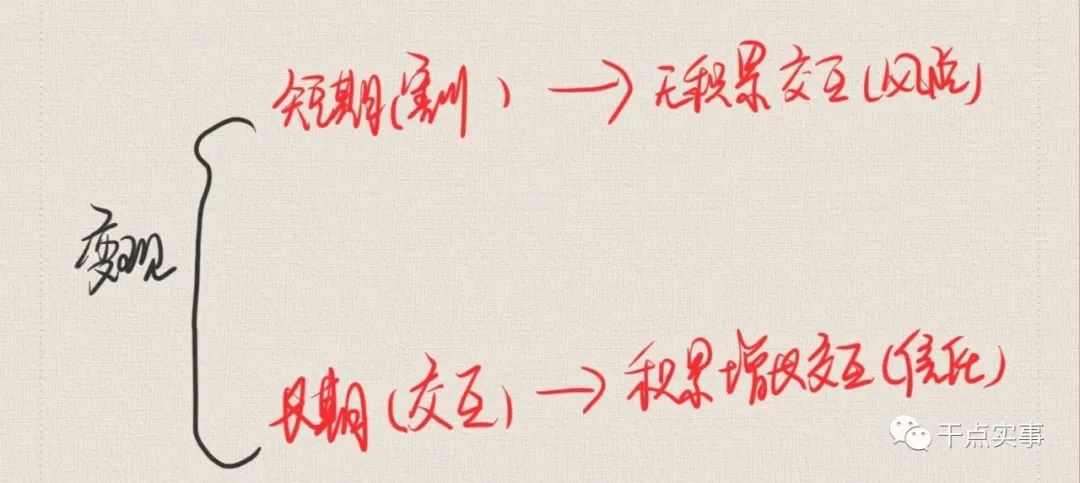 短期(割) → 无积累交互(风)
变现
长期(交互) → 积累增长交互(信任)
干点实事